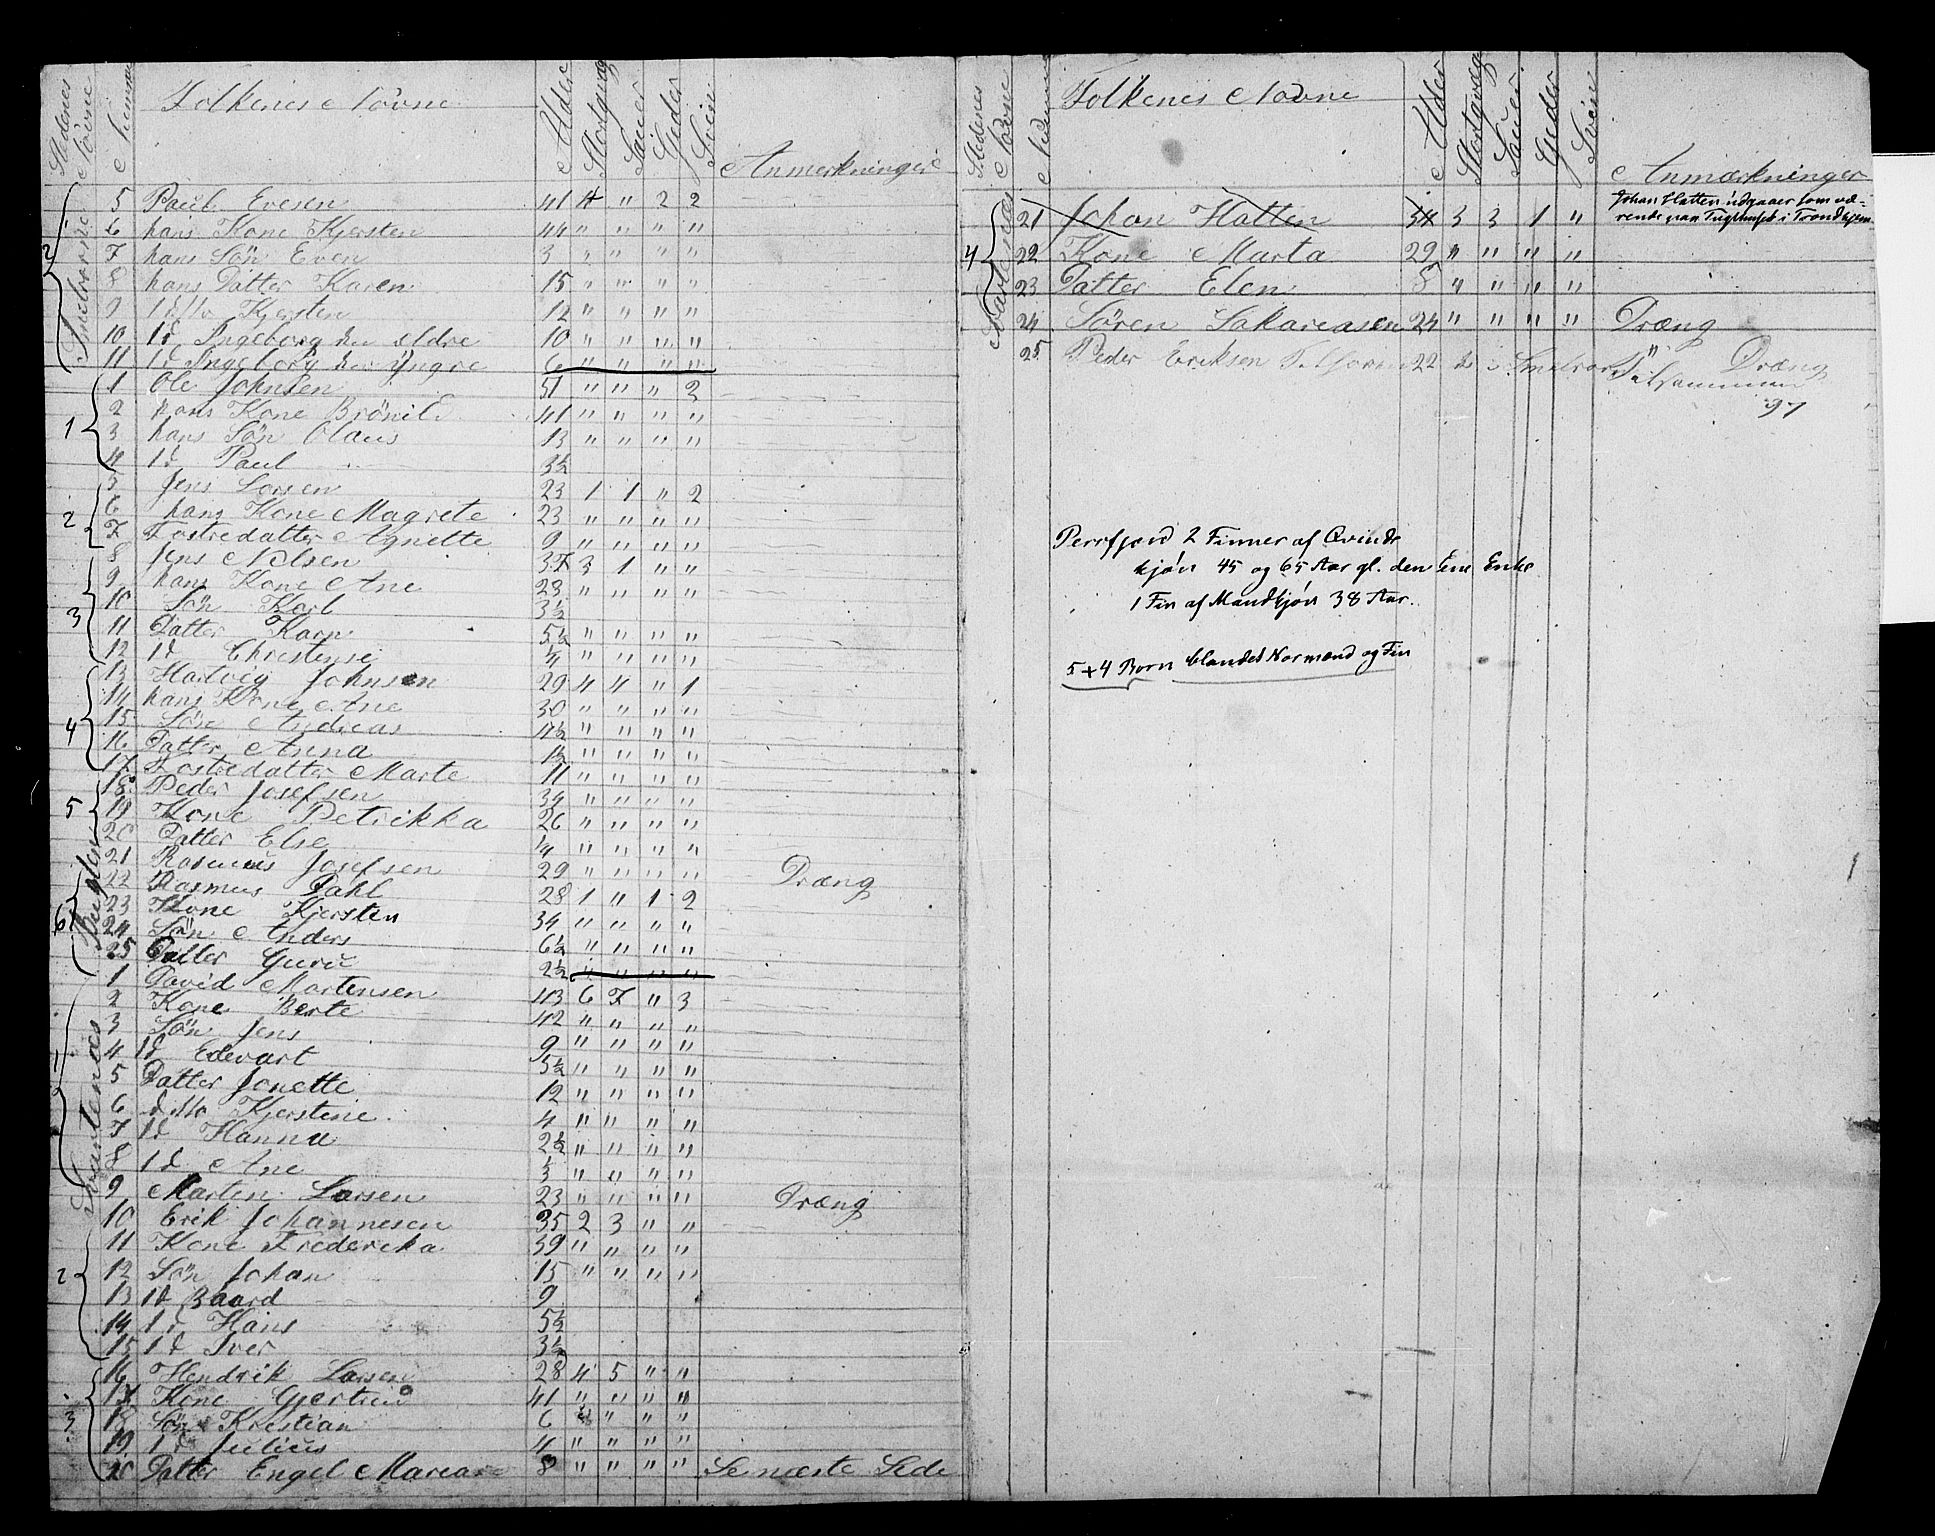 Stedenes Navne | Numer | Folkenes Navne | Alder | Storqvæg | Sauer | Geder | Svin | Anmerkninger
2 Smelvorne
5 Paul Evesen 41 4 " 2 2
6 hans Kone Kjersten 44 " " " "
7 hans Sön Even 3 " " " "
8 hans Datter Karen 15 " " " "
9 ditto Kjersten 12 " " " "
10 id Ingeborg den eldre 10 " " " "
11 id Ingeborg den yngre 6 " " " "
Kuglen
1
1 Ole Johnsen 51 " " " 2
2 hans Kone Brönild 41 " " " "
3 hans Sön Olaus 13 " " " "
4 id Paul 3½
2
5 Jens Larsen 23 1 1 " 2
6 hans Kone Magrete 23 " " " "
7 Fostredatter Agnette 9 " " " "
3
8 Jens Nelsen 37 3 1 " "
9 hans Kone Ane 28 " " " "
10 Sön Karl 3½
11 Datter Karn 5½ " " " "
12 id Christense ¼ " " " "
4
13 Hartvig Johnsen 29 4 4 " 1
14 hans Kone Ane 30 " " " "
15 Söne Andreas 4½ " " " "
16 Datter Anna 1½ " " " "
17 Fostredatter Marte 11 " " " "
5
18 Peder Josefsen 34 " " " "
19 Kone Petrikka 26 " " " "
20 Datter Else ¼ " " " "
21 Rasmus Josefsen 29 " " " " Dræng
6
22 Rasmus Dahl 28 1 " 1 2
23 Kone Kjersten 34 " " " "
24 Sön Anders 6½ " " " "
25 Datter Guru 2½ " " " "
Svartenæs
1
1 David Martensen 43 6 7 " 3
2 Kone Berte 42 " " " "
3 Sön Jens 9 " " " "
4 id Edevart 5½ " " " "
5 Datter Jonette 12 " " " "
6 ditto Kjerstine 4 " " " "
7 id Hanna 2½ " " " "
8 id Ane " " " "
9 Marten Larsen 23 " " " " Dræng
2
10 Erik Johannesen 35 2 3 " "
11 Kone Frederika 39 " " " "
12 Sön Johan 15 " " " "
13 id Baard 9
14 id Hans 5½
15 id Iver 3½
3
16 Hendrik Larsen 28 4 5 " "
17 Kone Gjertrud 41 " " " "
18 Sön Kristian 6 " " "
19 id Julius 4 " " " "
20 Datter Engel Marea 8 " " " " Se næste Side
Stedenes Navne | Numer | Folkenes Navne | Alder | Storqvæg | Sauer | Geder | Svin | Anmærkninger
4 Svartenæs
21 Johan Hatten 34 3 3 1 " Johan Hatten udgaaer som væ-
rende paa Tugthuset i Trondhjem
22 Kone Marta 29 " " " "
23 Datter Elen 8 " " " "
24 Sören Sakareasen 24 " " " " Dræng
25 Peder Eriksen 22 Dræng
Tilsammen
97
Perrfjord 2 Finner af Qvinde
kjön 45 og 65 Aar gl. den Ene Enke
1 Fin af Mandkjön 38 Aar.
5+4 Born blandet Normænd og Fin